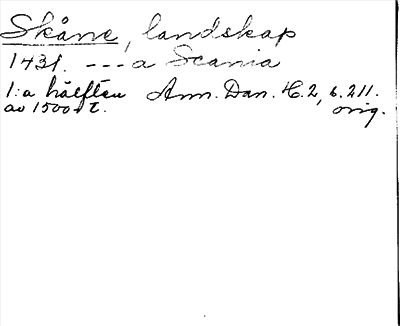 Skåne, landskap
1431. --- a Scania
1:a hälften Ann. Dan. H. 2, s. 211.
av 1500 t. orig.